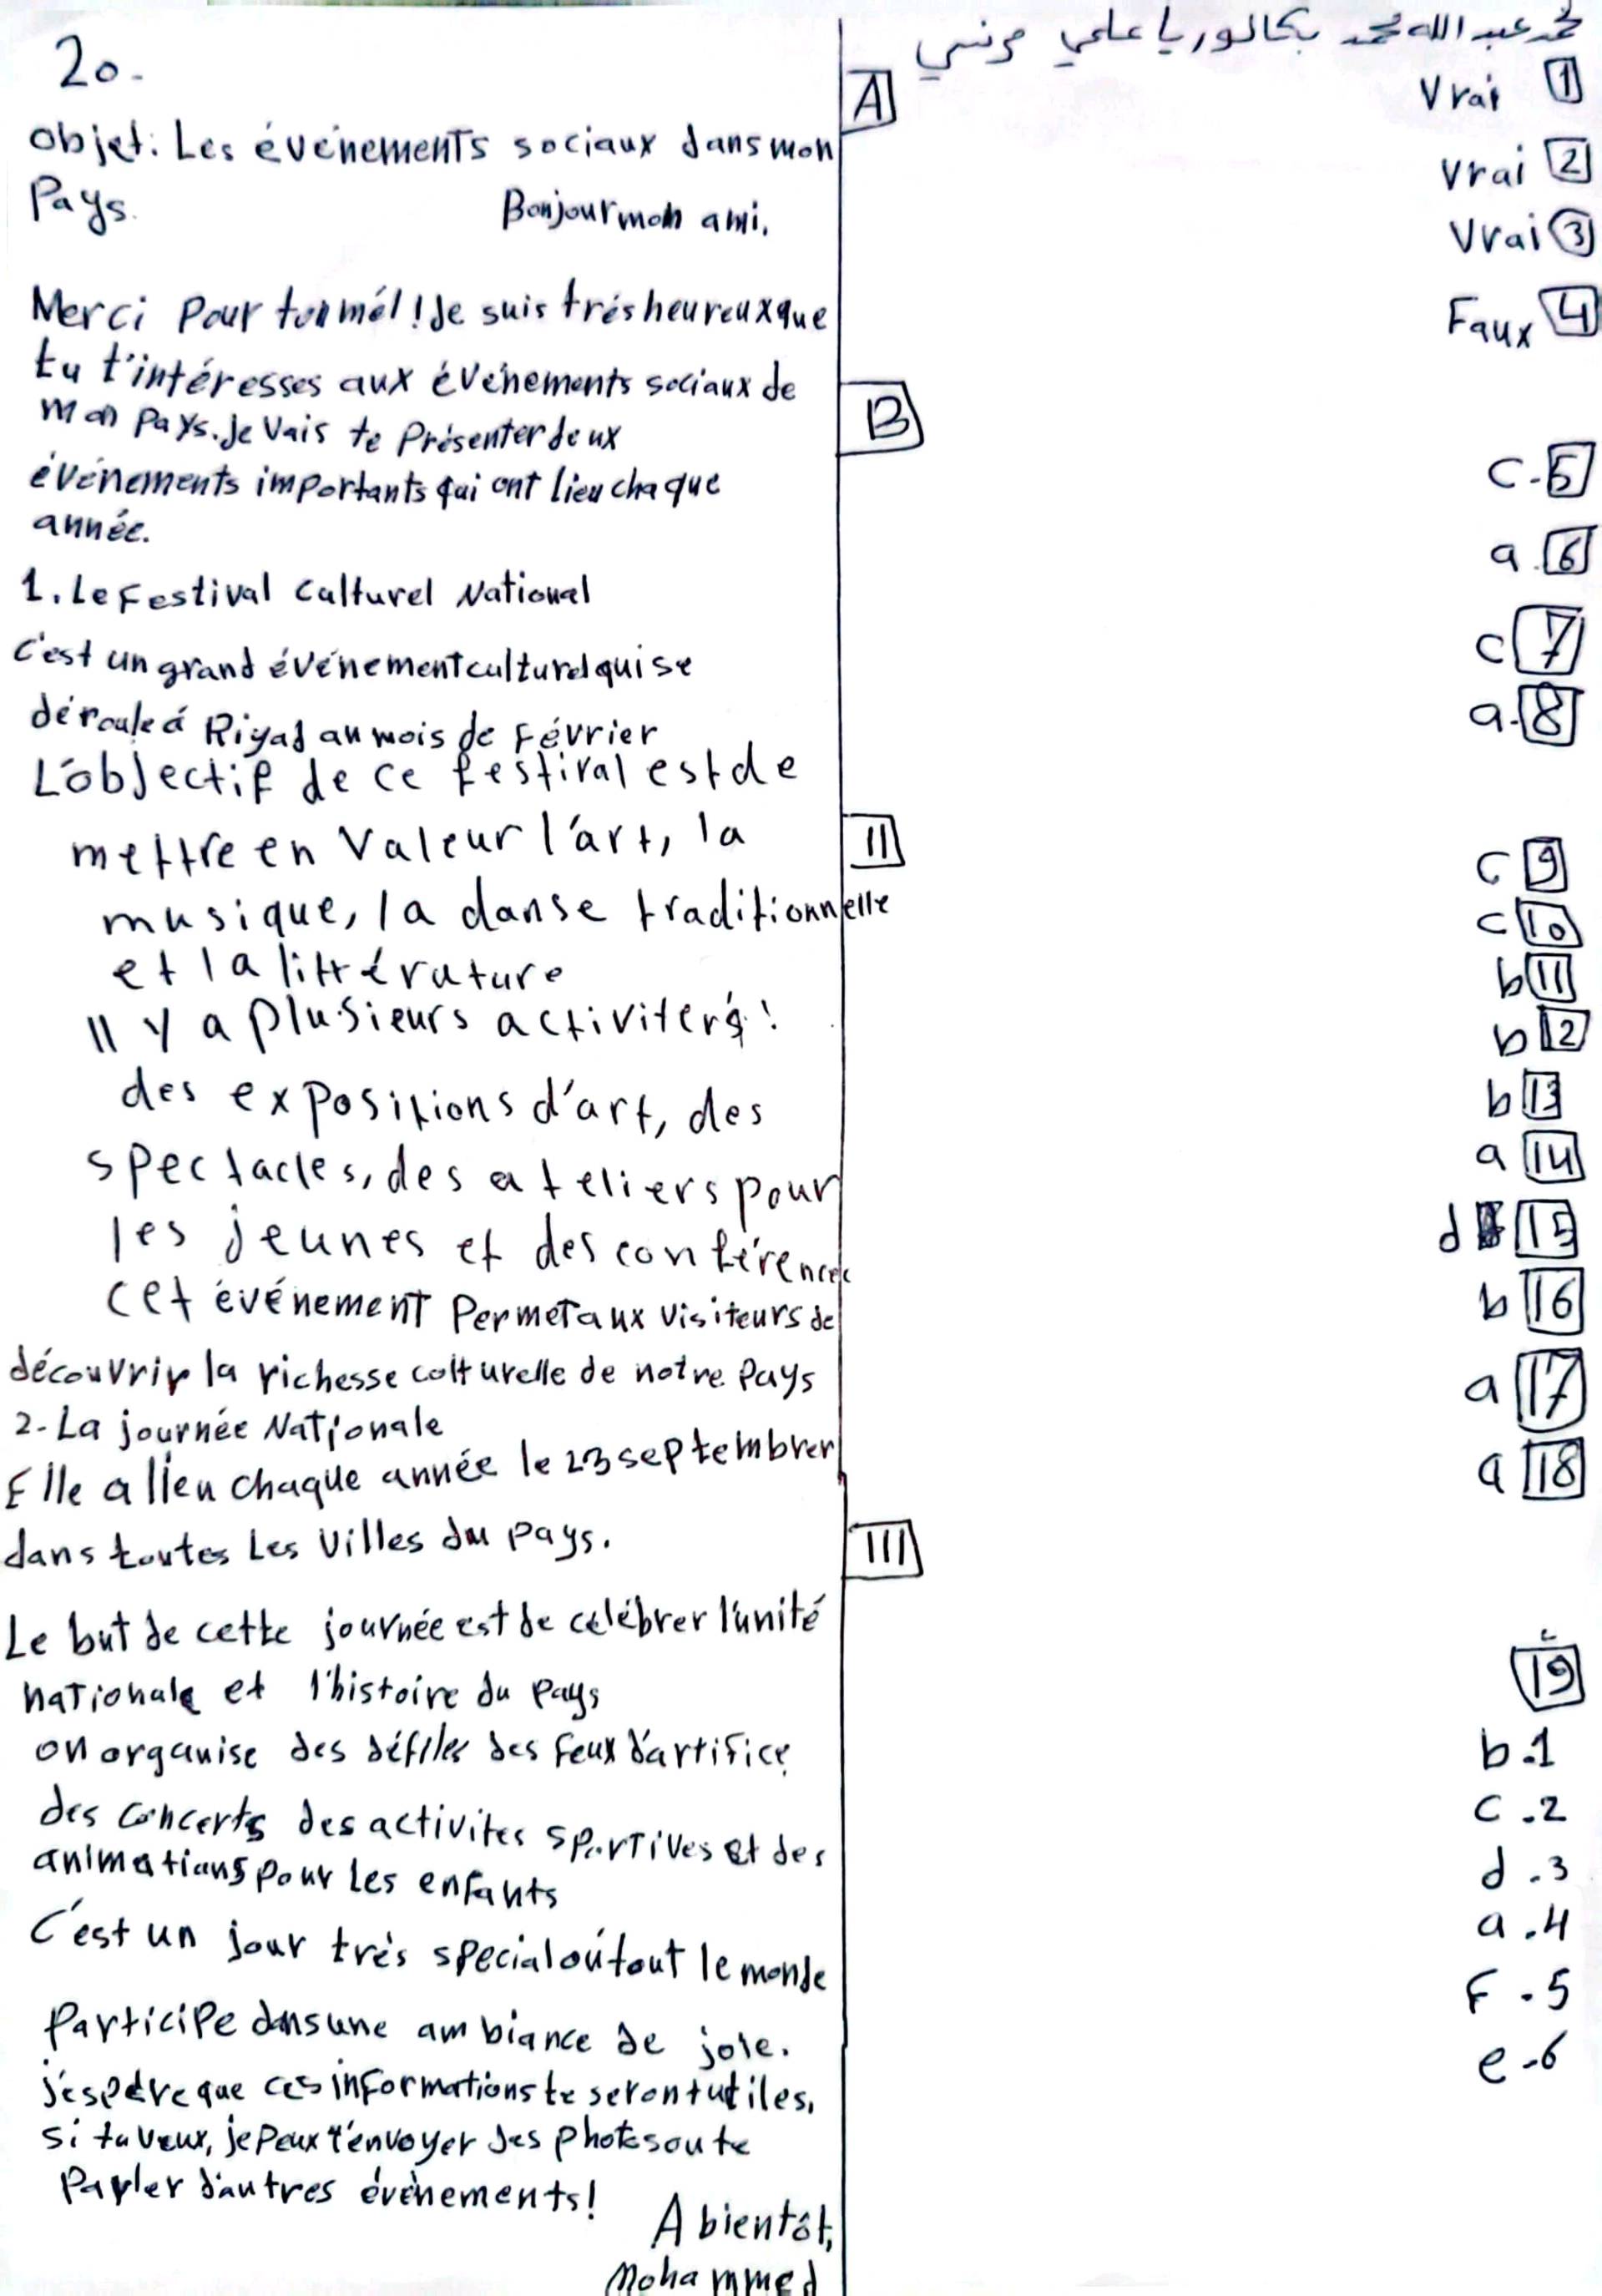 محمد عبد الله محمد بكالوريا علمي فرنسي
A
Vrai 1
Vrai 2
Vrai 3
Faux 4
B
c-5
a.6
c 7
a-8
II
c 9
c 10
b 11
b 12
b 13
a 14
d 15
b 16
a 17
a 18
III
19
b.1
c.2
d.3
a.4
F.5
e-6
20-
objet: Les événements sociaux dans mon
Pays.
Bonjour mon ami,
Merci Pour ton mél! Je suis trés heureux que
tu t'intéresses aux événements sociaux de
mon Pays. Je Vais te Présenter deux
événements importants qui ont lieu chaque
année.
1. Le Festival Culturel National
C'est un grand événement culturel qui se
déroule á Riyad au mois de Février
L'objectif de ce festival est de
mettre en Valeur l'art, la
musique, la danse traditionnelle
et la littérature
Il y a Plusieurs activiterś:
des expositions d'art, des
spectacles, des ateliers pour
les jeunes et des conférences
Cet événement Permet aux visiteurs de
découvrir la richesse colturelle de notre Pays
2- La journée Nationale
Elle a lieu chaque année le 23 septembrer
dans toutes Les Villes du pays.
Le but de cette journée est de célébrer l'unité
nationale et l'histoire du pays
on organise des défiles des feux d'artifice
des concerts des activites sportives et des
animations pour les enfants
C'est un jour trés special oú tout le monde
Participe dans une ambiance de joie.
j'espére que ces informations te seront utiles,
si tu veux, je Peux t'envoyer des photos ou te
Parler d'autres événements!
A bientôt,
Mohammed